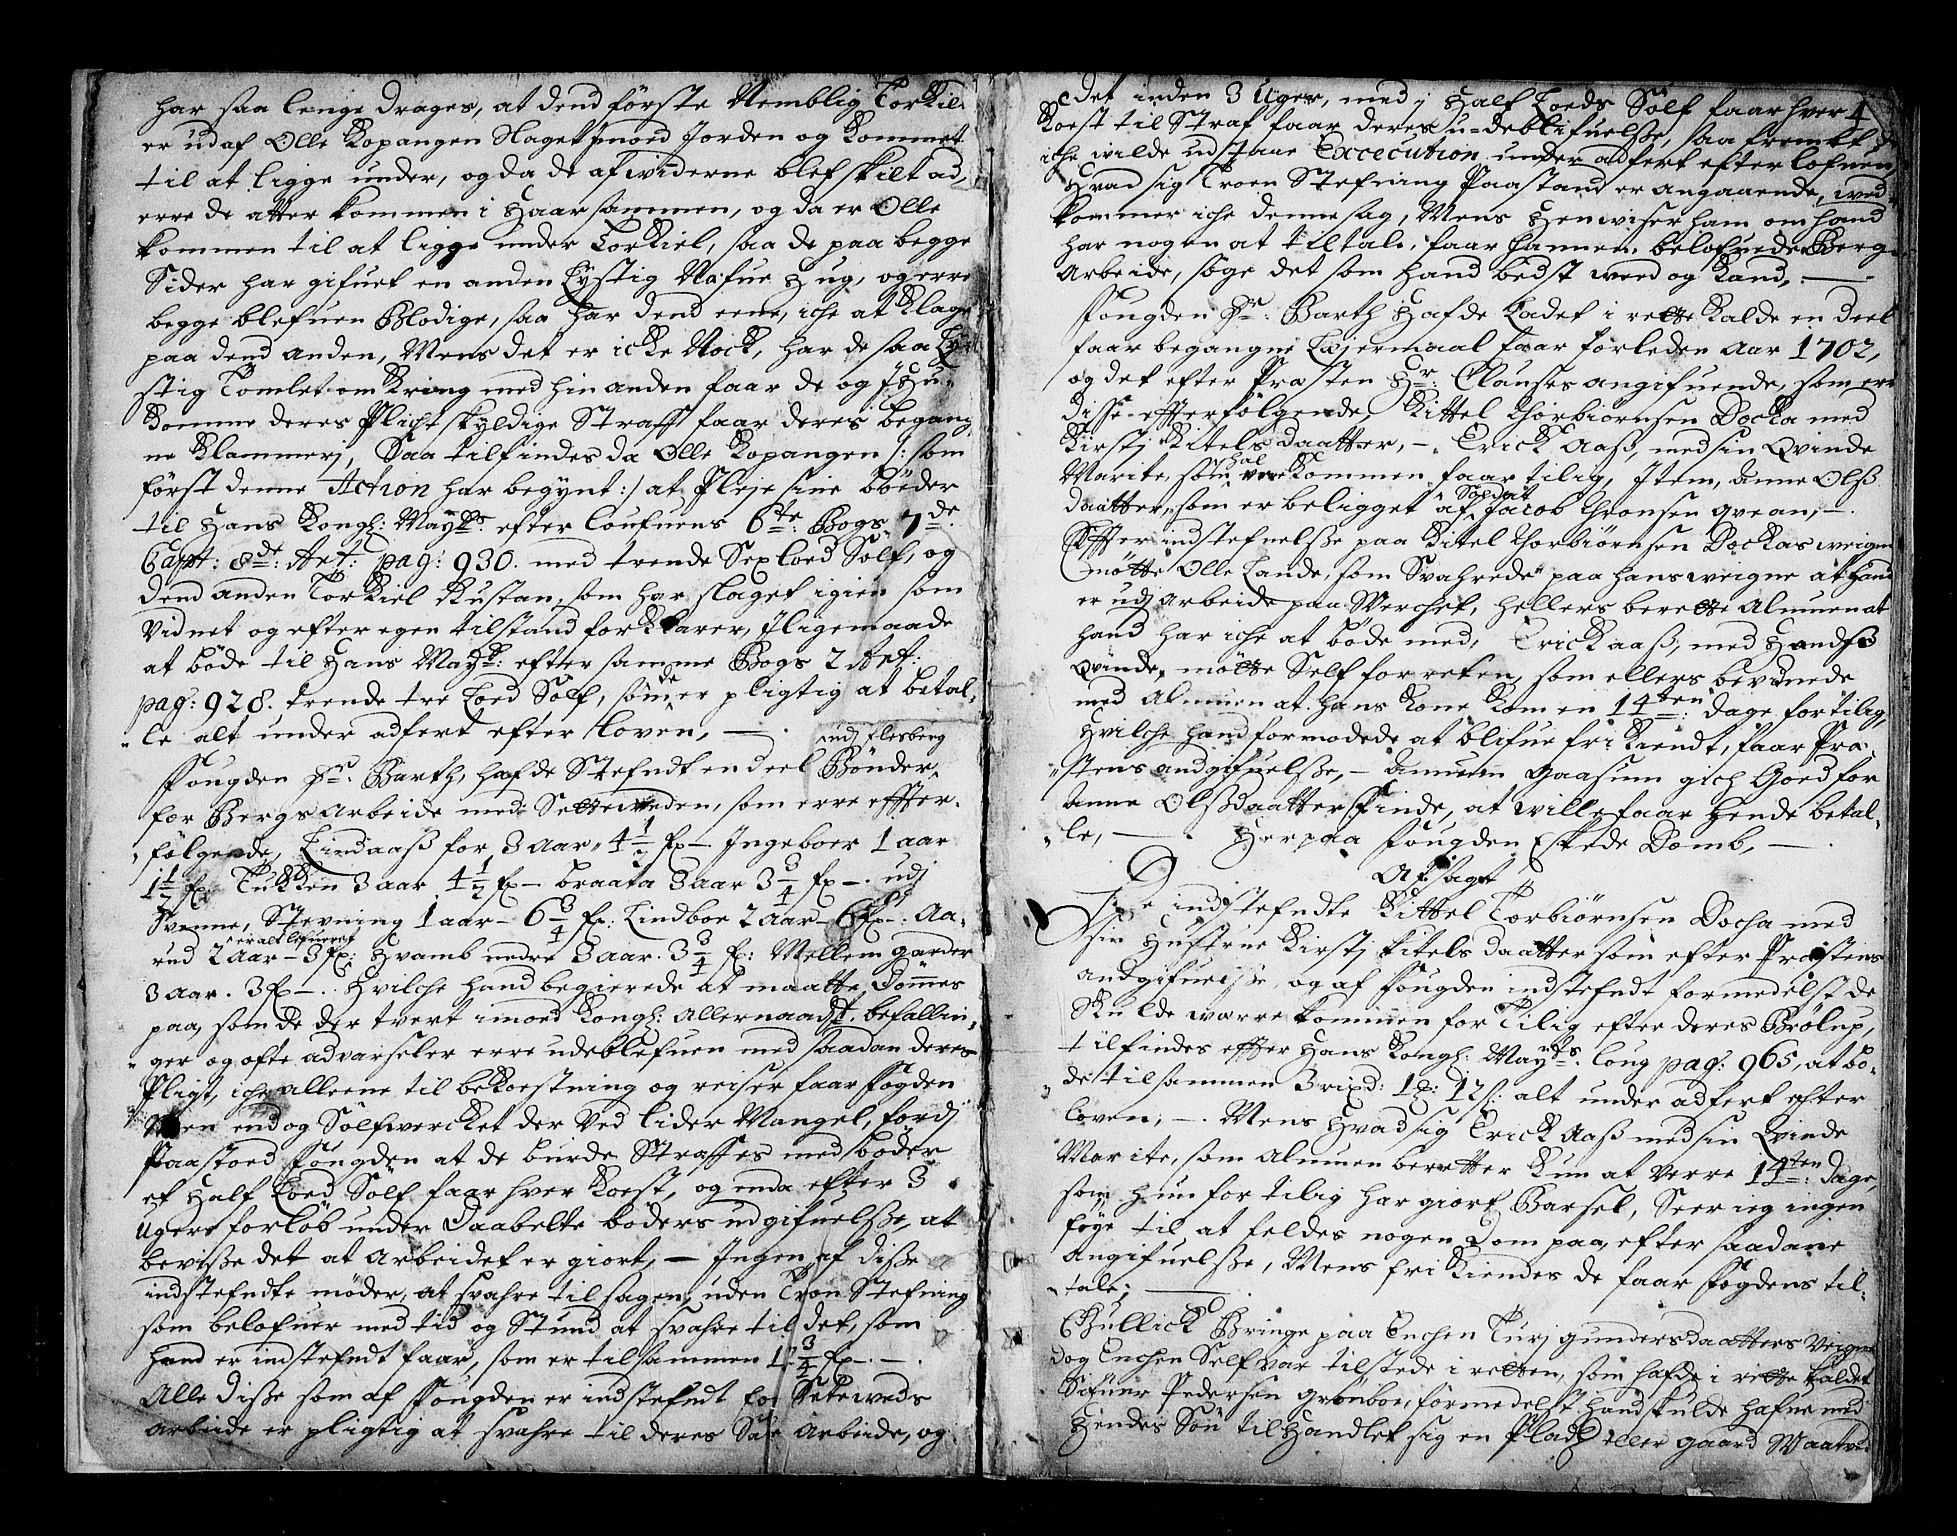 har saa lenge drages, at dend förste Nemblig Torkil
er ud af Olle Kopangen Slaget imoed Jorden og kommet
til at ligge under, og da de af widerne blef skilt ad,
erre de atter kommen i Haar sammen, og da er Olle
kommen til at ligge under Torkiel, saa de paa begge
Sider har gifuet en anden Lystig Nafue Hug, og erre
begge blefuen Blodige, saa har dend eene, iche at klage
paa dend anden, Mens det er icke Nock, har de saa Ly-
stig Tomlet om kring med hin anden faar de og J Hu-
komme deres Plicht skyldige Straff faar deres begang
ne Klammerj, Saa tilfindes da Olle Kopangen /: som
först denne Action har begynt :/ at Pleje sine böeder
til Hans Kongl: Maytz: efter loufuens 6te: Bogs 7de
Capit: 8de: Art: pag: 930. med trende Sex loed Sölf, og
dend anden Torkiel Rustan, som har slaget igien som
Vidnet og efter egen tilstand forklarer, Jligemaade
at böde til Hans Maytz: efter samme Bogs 2 Art:
pag: 928. trende tre Loed Sölf, som de er pligtig at betal-
le alt under adfert efter Loven, —
Fougden Sr. Barth, hafde Stefndt en deel Bönder udj Flesberg
for Bergs Arbeide med Setteweden, som erre effter-
fölgende, Lindaaß for 3 Aar 4½ fx — Ingeboer 1 aar
1½ fx. Tukken 3 aar 4½ fx — braata 3 aar 3¾ fx —. udj
Svenne, Stevning 1 aar — 6¾ fx: Lindboe 2 Aar — 6 fx —. Aa-
rud 2 Aar — 3 fx: er alt lefueret Hvamb nedre 3 aar. 3¾ fx: Mellem garder
3 Aar. 3 fx —. Hvilche hand begierede at maatte Dömmes
paa, som de der tvert imoed Kongl: Allernaadst: befallin-
ger og ofte advarseler erre udeblefuen med saadan deres
Pligt, iche alleene til bekoestning og reiser faar Fogden
Men end og Sölfwercket der ved lider Mangel, fordj
Paastoed Fougden at de burde Straffes med böder
et Half Loed Sölf faar hver Koest, og enda efter 3
Ugers forlöb under Daabelte böders udgifuelsße, at
bevisße det at Arbeidet er giort, — Ingen af disße
indstefndte möder, at svahre til sagen, uden Tron Stefning
som belofuer med tid og Stund at svahre til det, som
hand er indstefndt faar, som er tilsammen ¾ fx —. —.
Alle disße som af Fougden er indstefndt for Seteweds
Arbeide er pligtig at svahre til deres Arbeide, og
det inden 3 Uger, med j Half Loeds Sölf faar hver 4
Koest til Straf faar deres u-deblifuelsße, saa fremt de
iche wilde udstaae Excecution under adfert efter lofuen,
Hvad sig Troen Stefning Paastand er angaaende, wed-
kommer iche denne sag, Mens Henwiser ham om hand
har nogen at tiltale, faar hannem belofuede Berg-
Arbeide, söge det som hand bedst weed og kand, —
Fougden Sr: Barth Hafde ladet i rette kalde en deel
faar begangne Leiermaal faar forleden Aar 1702,
og det efter Præsten Hr: Clauses angifuende, som erre
disse efterfölgende, Kittel Thorbiörnsen Docka med
Kirstj Kitels daatter, —. Erick Aaß, med sin Qvinde
Marite, som schal være kommen faar tilig, Item, Anne Olß
daatter, som er beligget af Soldat Jacob Thronsen Qvean, —.
Effter indstefnelsße paa Kitel Thorbiörnsen Dockas weigne
mötte Olle Lande, som Svahrede paa hans weigne at hand
er udj Arbeide paa Werchet, hellers berette Almuen at
hand har iche at böde med, Erick Aaß, med Handß
Qvinde, mötte Self for reten, som ellers bevidnede
med Almuen at hans kone kom en 14ten: dage for tilig,
Hvilche hand formodede at blifue fri kiendt, faar Præ-
stens andgifuelsße, — Amund Gaasum gich Goed for
Anne Olsdaatters Sinde, at wille faar Hende betal-
le, —. Her paa Fougden Eskede Domb, —.
Afsagt
De indstefndte Kittel Torbiörnsen Docha med
sin Hustrue Kirstj Kitels daatter som efter Præstens
andgifuelsße, og af Fougden indstefndt formedelst de
Skulde wærre kommen for Tilig efter deres Brölup,
tilfindes effter Hans Kongl: Mayts: loug pag: 965, at bö-
de tilsammen 3 rixd: 1 : 12 s: alt under adfert efter
loven, —. Mens Hvad sig Erick Aaß med sin Qvinde
Marite, som Almuen beretter kun at verre 14ten: dage,
som hun for tilig har giort Barsel, Seer ieg ingen
föye til at feldes nogen Dom paa, efter saadane
Angifuelsße, Mens fri kiendes de faar Fogdens til-
tale; —
Gullick Bringe paa Enchen Turj Gundersdaatters Veigne
dog Enchen Self var tilstede i retten, som hafde i rette kaldet
Sifuer Pedersen Grönboe, formedelst hand skulde hafue med
Hendes Sön til Handlet sig en Plads eller gaard